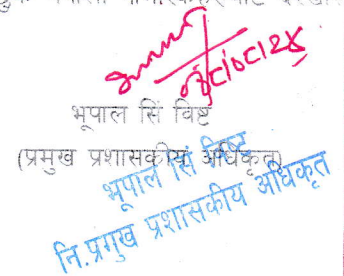 भूपाल सिं विष्ट
(प्रमुख प्रशासकीय अधिकृत)
भूपाल सिं विष्ट
नि.प्रमुख प्रशासकीय अधिकृत